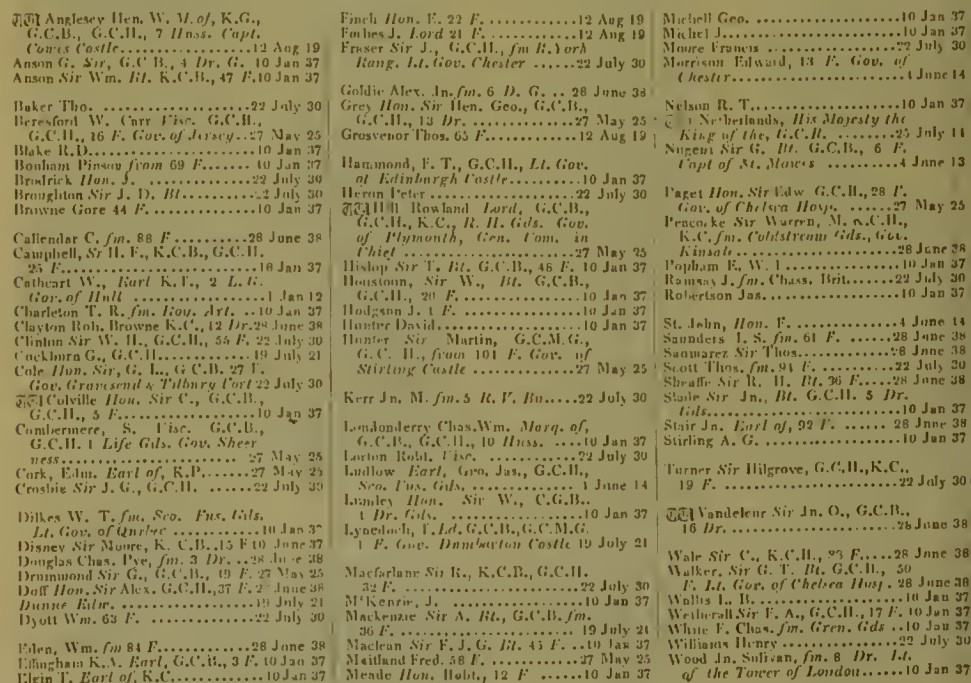 Anglesey Hen. W. M. of, K.G.,
G.C.B., G.C.H., 7 Huss. Capt.
Cowes Castle...............12 Aug 19
Anson G. Sir, G.C B., 4 Dr. G. 10 Jan 37
Anson Sir Wm. Bt. K.C.B., 47 F.10 Jan 37
Baker Tho. ..................22 July 30
Beresford W. Carr Visc. G.C.B.,
G.C.H., 16 F. Gov. of Jersey..27 May 25
Blake R.D....................10 Jan 37
Bonham Pinson from 69 F...... 10 Jan 37
Brodrick Hon. J. .............22 July 30
Broughton Sir J. D. Bt........22 July 30
Browne Gore 44 F.............10 Jan 37
Callendar C. fm. 88 F..........28 June 38
Campbell, Sr H. F., K.C.B., G.C.H.
25 F........................10 Jan 37
Cathcart W., Earl K.T., 2 L.G.
Gov. of Hull ................1 Jan 12
Charleton T. R. fm. Roy. Art. ..10 Jan 37
Clayton Rob. Browne K.C., 12 Dr.28 June 38
Clinton Sir W. H., G.C.H., 55 F. 22 July 30
Cockburn G., G.C.H............19 July 21
Cole Hon. Sir, G. L., G C.B. 27 F.
Gov. Gravesend & Tilbury Fort 22 July 30
Colville Hon. Sir C., G.C.B.,
G.C.H., 5 F..................10 Jan 37
Combermere, S. Visc. G.C.B.,
G.C.H. 1 Life Gds. Gov. Sheer
ness........................ 27 May 25
Cork, Edm. Earl of, K.P.......27 May 25
Crosbie Sir J. G., G.C.H. ......22 July 30
Dilkes W. T. fm. Sco. Fus. Gds.
Lt. Gov. of Quebec ..........10 Jan 37
Disney Sir Moore, K. C.B.,15 F 10 June 37
Douglas Chas. Pye, fm. 3 Dr. ..28 June 38
Drummond Sir G., G.C.B., 49 F. 27 May 25
Duff Hon. Sir Alex. G.C.H., 37 F. 28 June 38
Dunne Edw. ..................19 July 21
Dyott Wm. 63 F. .............22 July 30
Eden, Wm. fm 84 F............28 June 38
Effingham K.A. Earl, G.C.B., 3 F. 10 Jan 37
Elgin T. Earl of, K.C...........10 Jan 37
Finch Hon. E. 22 F. ............12 Aug 19
Forbes J. Lord 21 F. ............12 Aug 19
Fraser Sir J., G.C.H., fm R. York
Rang. Lt. Gov. Chester ......22 July 30
Goldie Alex. Jn. fm. 6 D. G. .. 28 June 38
Grey Hon. Sir Hen. Geo., G.C.B.,
G.C.H., 13 Dr. ..............27 May 25
Grosvenor Thos. 65 F...........12 Aug 19
Hammond, F. T., G.C.H., Lt. Gov.
of Edinburgh Castle..........10 Jan 37
Heron Peter ..................22 July 30
Hill Rowland Lord, G.C.B.,
G.C.H., K.C., R. H. Gds. Gov.
of Plymouth, Gen. Com. in
Chief ......................27 May 25
Hislop Sir T. Bt. G.C.B., 48 F. 10 Jan 37
Houstoun, Sir W., Bt. G.C.B.,
G.C.H., 20 F. ...............10 Jan 37
Hodgson J. 4 F. ...............10 Jan 37
Hunter David..................10 Jan 37
Hunter Sir Martin, G.C.M.G.,
G. C. H., from 101 F. Gov. of
Stirling Castle ..............27 May 25
Kerr Jn. M. fm. 5 R. V. Bn......22 July 30
Londonderry Chas.Wm. Marq. of,
G.C.B., G.C.H., 10 Huss. ....10 Jan 37
Lorton Robt. Visc. ............22 July 30
Ludlow Earl, Geo. Jas., G.C.H.,
Sco. Fus. Gds. .............. 4 June 14
Lumley Hon. Sir W., C.G.B..
1 Dr. Gds. ..................10 Jan 37
Lynedoch, T. Ld. G.C.B.,G.C.M.G.
1 F. Gov. Dumbarton Castle 19 July 21
Macfarlane Sir R., K.C.B., G.C.H.
32 F. ......................22 July 30
M'Kenzie, J. ..................10 Jan 37
Mackenzie Sir A. Bt., G.C.B. fm.
36 F. ......................19 July 21
Maclean Sir F. J. G. Bt. 45 F. ..10 Jan 37
Maitland Fred. 58 F. ..........27 May 25
Meade Hon. Robt., 12 F .......10 Jan 37
Michell Geo. ..................10 Jan 37
Michel J......................10 Jan 37
Moore Francis ................22 July 30
Morrison Edward, 13 F. Gov. of
Chester......................4 June 14
Nelson R. T...................10 Jan 37
Netherlands, His Majesty the
King of the, G.C.B. .........25 July 11
Nugent Sir G. Bt. G.C.B., 6 F.
Capt of St. Mawes ..........4 June 13
Paget Hon. Sir Edw G.C.B., 28 F.
Gov. of Chelsea Hosp. ......27 May 25
Peacocke Sir Warren, M. K.C.H.,
K.C. fm. Coldstream Gds., Gov.
Kinsale ....................28 June 38
Popham E. W. L...............10 Jan 37
Ramsay J. fm. Chass. Brit......22 July 30
Robertson Jas..................10 Jan 37
St. John, Hon. F. .............4 June 14
Saunders I. S. fm. 61 F. ......28 June 38
Saumarez Sir Thos.............28 June 38
Scott Thos. fm. 94 F. ..........22 July 30
Sheaffe Sir R. H. Bt. 36 F.....28 June 38
Slade Sir Jn., Bt. G.C.H. 5 Dr.
Gds........................10 Jan 37
Stair Jn. Earl of, 92 F. ...... 28 June 38
Stirling A. G. ................10 Jan 37
Turner Sir Hilgrove, G.C.H.,K.C.,
19 F. ......................22 July 30
Vandeleur Sir Jn. O., G.C.B..
16 Dr. .....................28 June 38
Wale Sir C., K.C.H., 33 F.....28 June 38
Walker, Sir G. T. Bt. G.C.B., 50
F. Lt. Gov. of Chelsea Hosp. . 28 June 38
Wallis L. B. ..................10 Jan 37
Wetherall Sir F. A., G.C.H., 17 F. 10 Jan 37
White F. Chas. fm. Gren. Gds ..10 Jan 37
Williams Henry ..............22 July 30
Wood Jn. Sulivan, fm. 8 Dr. Lt.
of the Tower of London......10 Jan 37